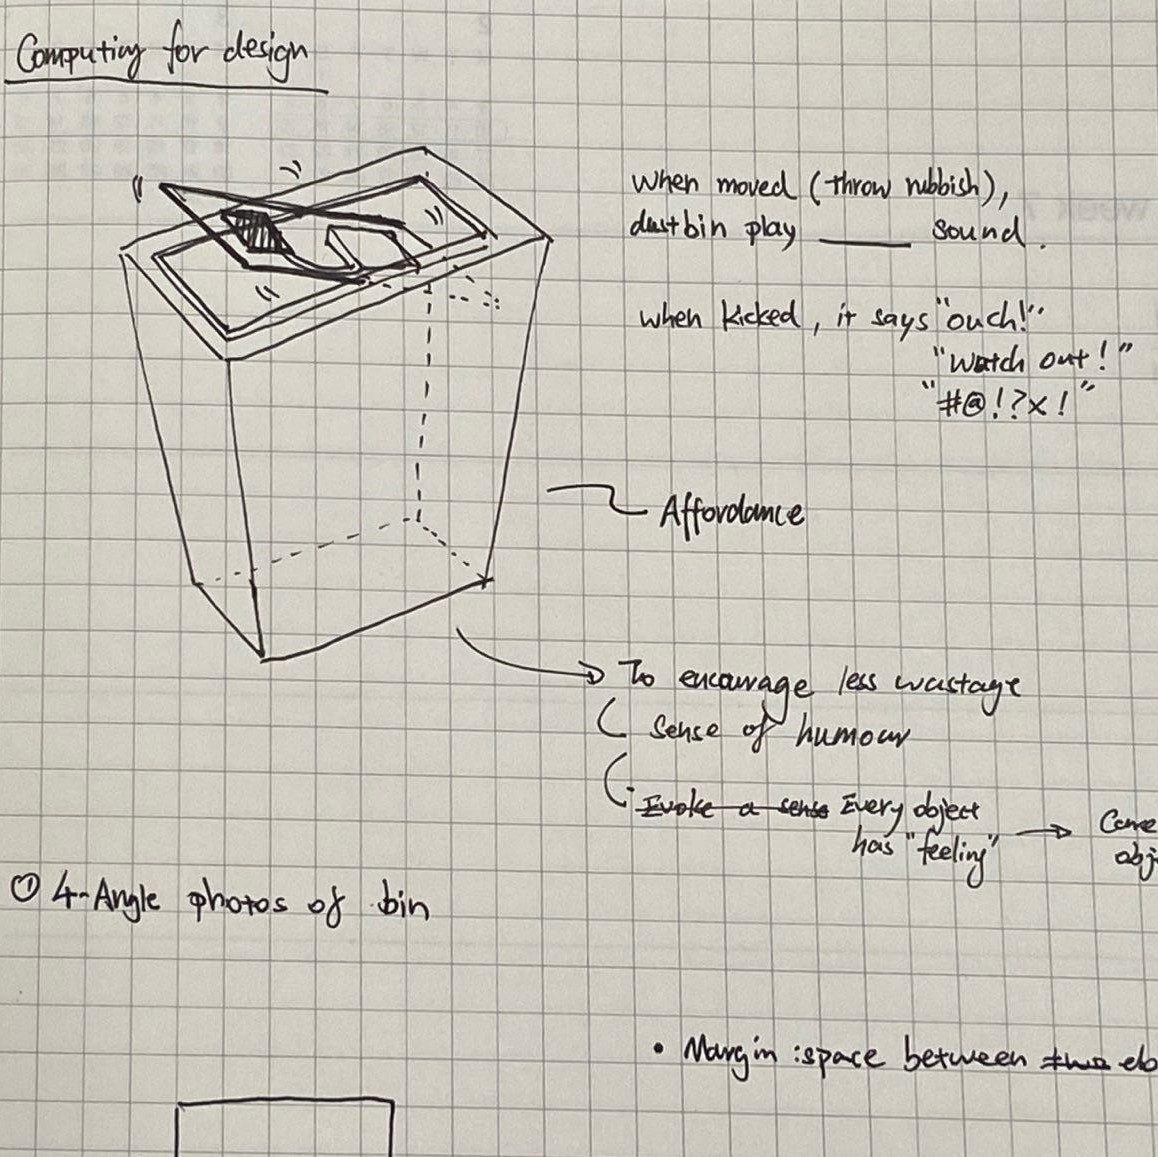 Computing for design
When moved (throw rubbish),
dustbin play ____ sound.
when kicked, it says "ouch!"
"Watch out!"
"#@!?x!"
Affordance
To encourage less wastage
Sense of humour
Evoke a sense Every object
has "feeling" → Came
obj
① 4-Angle photos of bin
• Margin : space between two elo